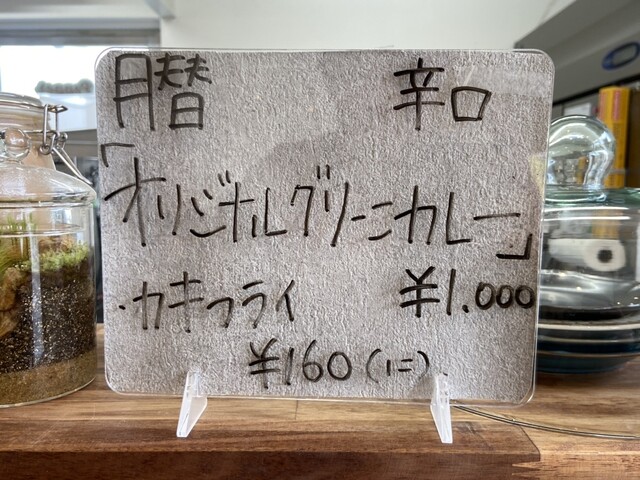 月替 辛口
「オリジナルグリーンカレー」
・カキフライ ¥1.000
¥160(1コ)